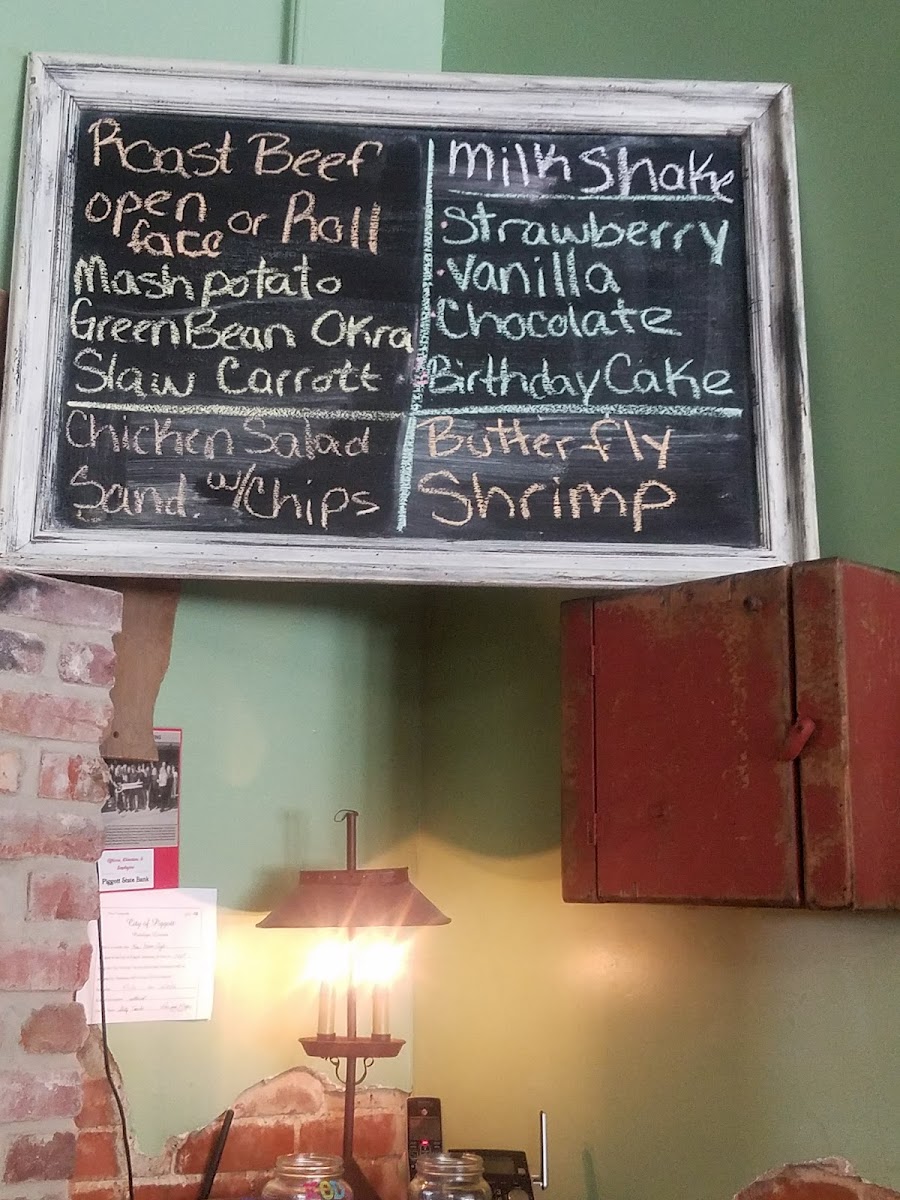 Roast Beef
open face or Roll
Mash potato
Green Bean Okra
Slaw Carrott
Chicken Salad
Sand. w/Chips
Milk Shake
Strawberry
Vanilla
Chocolate
Birthday Cake
Butterfly
Shrimp
Piggott State Bank
City of Piggott